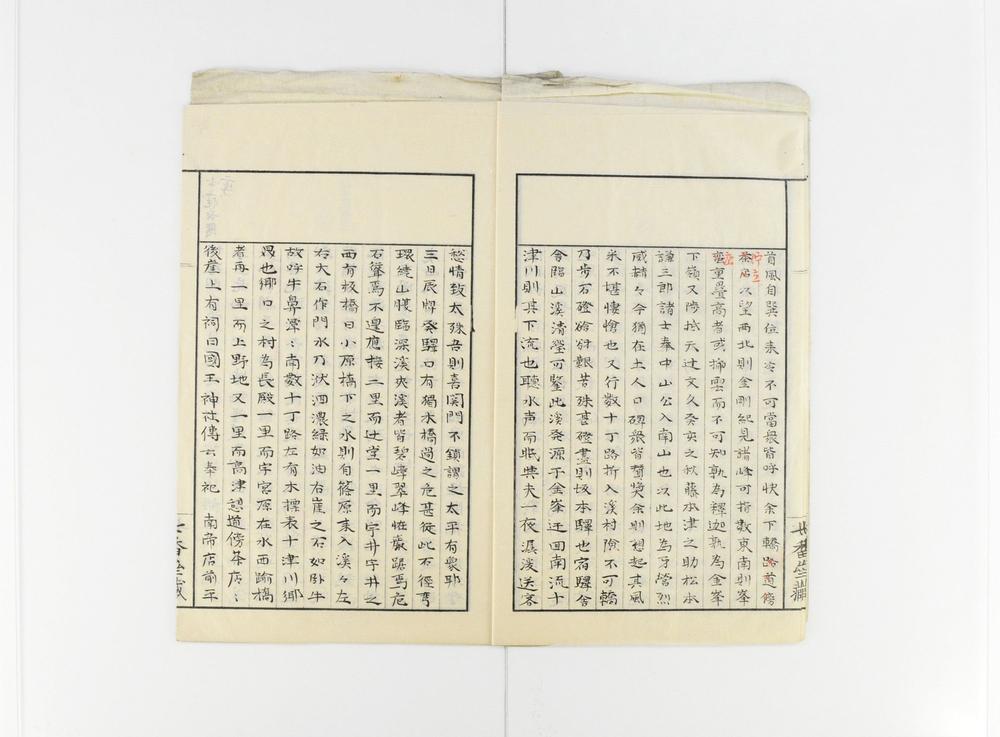 首風自巽位来冷不可當衆皆呼快余下轎路道傍
茶店以望西北則金剛紀見諸峰可指数東南則峯
巒重疊高者或挿雲而不可知孰為釋迦孰為金峯
下嶺又陟抵天辻文久癸亥之秋藤本津之助松本
謙三郎諸士奉中山公入南山也以此地為牙營烈
威赫々今猶在土人口碑衆皆聳奐余則想起其風
米不堪悽愴也又行数十丁路折入溪村險不可轎
乃步石磴硌砑艱苦殊甚磴盡則坂本驛也宿驛舍
舍臨山溪清瑩可鑒此溪発源于金峯迂回南流十
津川則其下流也聽水声而眠典夫一夜潺湲送客
愁情致太殊吾則喜関門不鎖謂之太平有象耶
三日晨辭癸驛口有獨木橋過之危甚從此石徑弯
環繞山腰臨深溪夾溪者皆碧嶂翠峰恠巖踞焉危
石聳焉不遑應接二里而辻堂一里而宇井宇井之
西有板橋曰小原橋下之水則自篠原来入溪々左
右大石作門水乃洑洄濃綠如油右崖之石如卧牛
故呼牛鼻潭々南数十丁路左有木標表十津川郷
界也郷口之村為長殿一里而宇宮原在水西踰橋
者再二里而上野地又一里而高津憩道傍茶店々
後崖上有祠曰國王神社傳云奉祀 南帝店前平